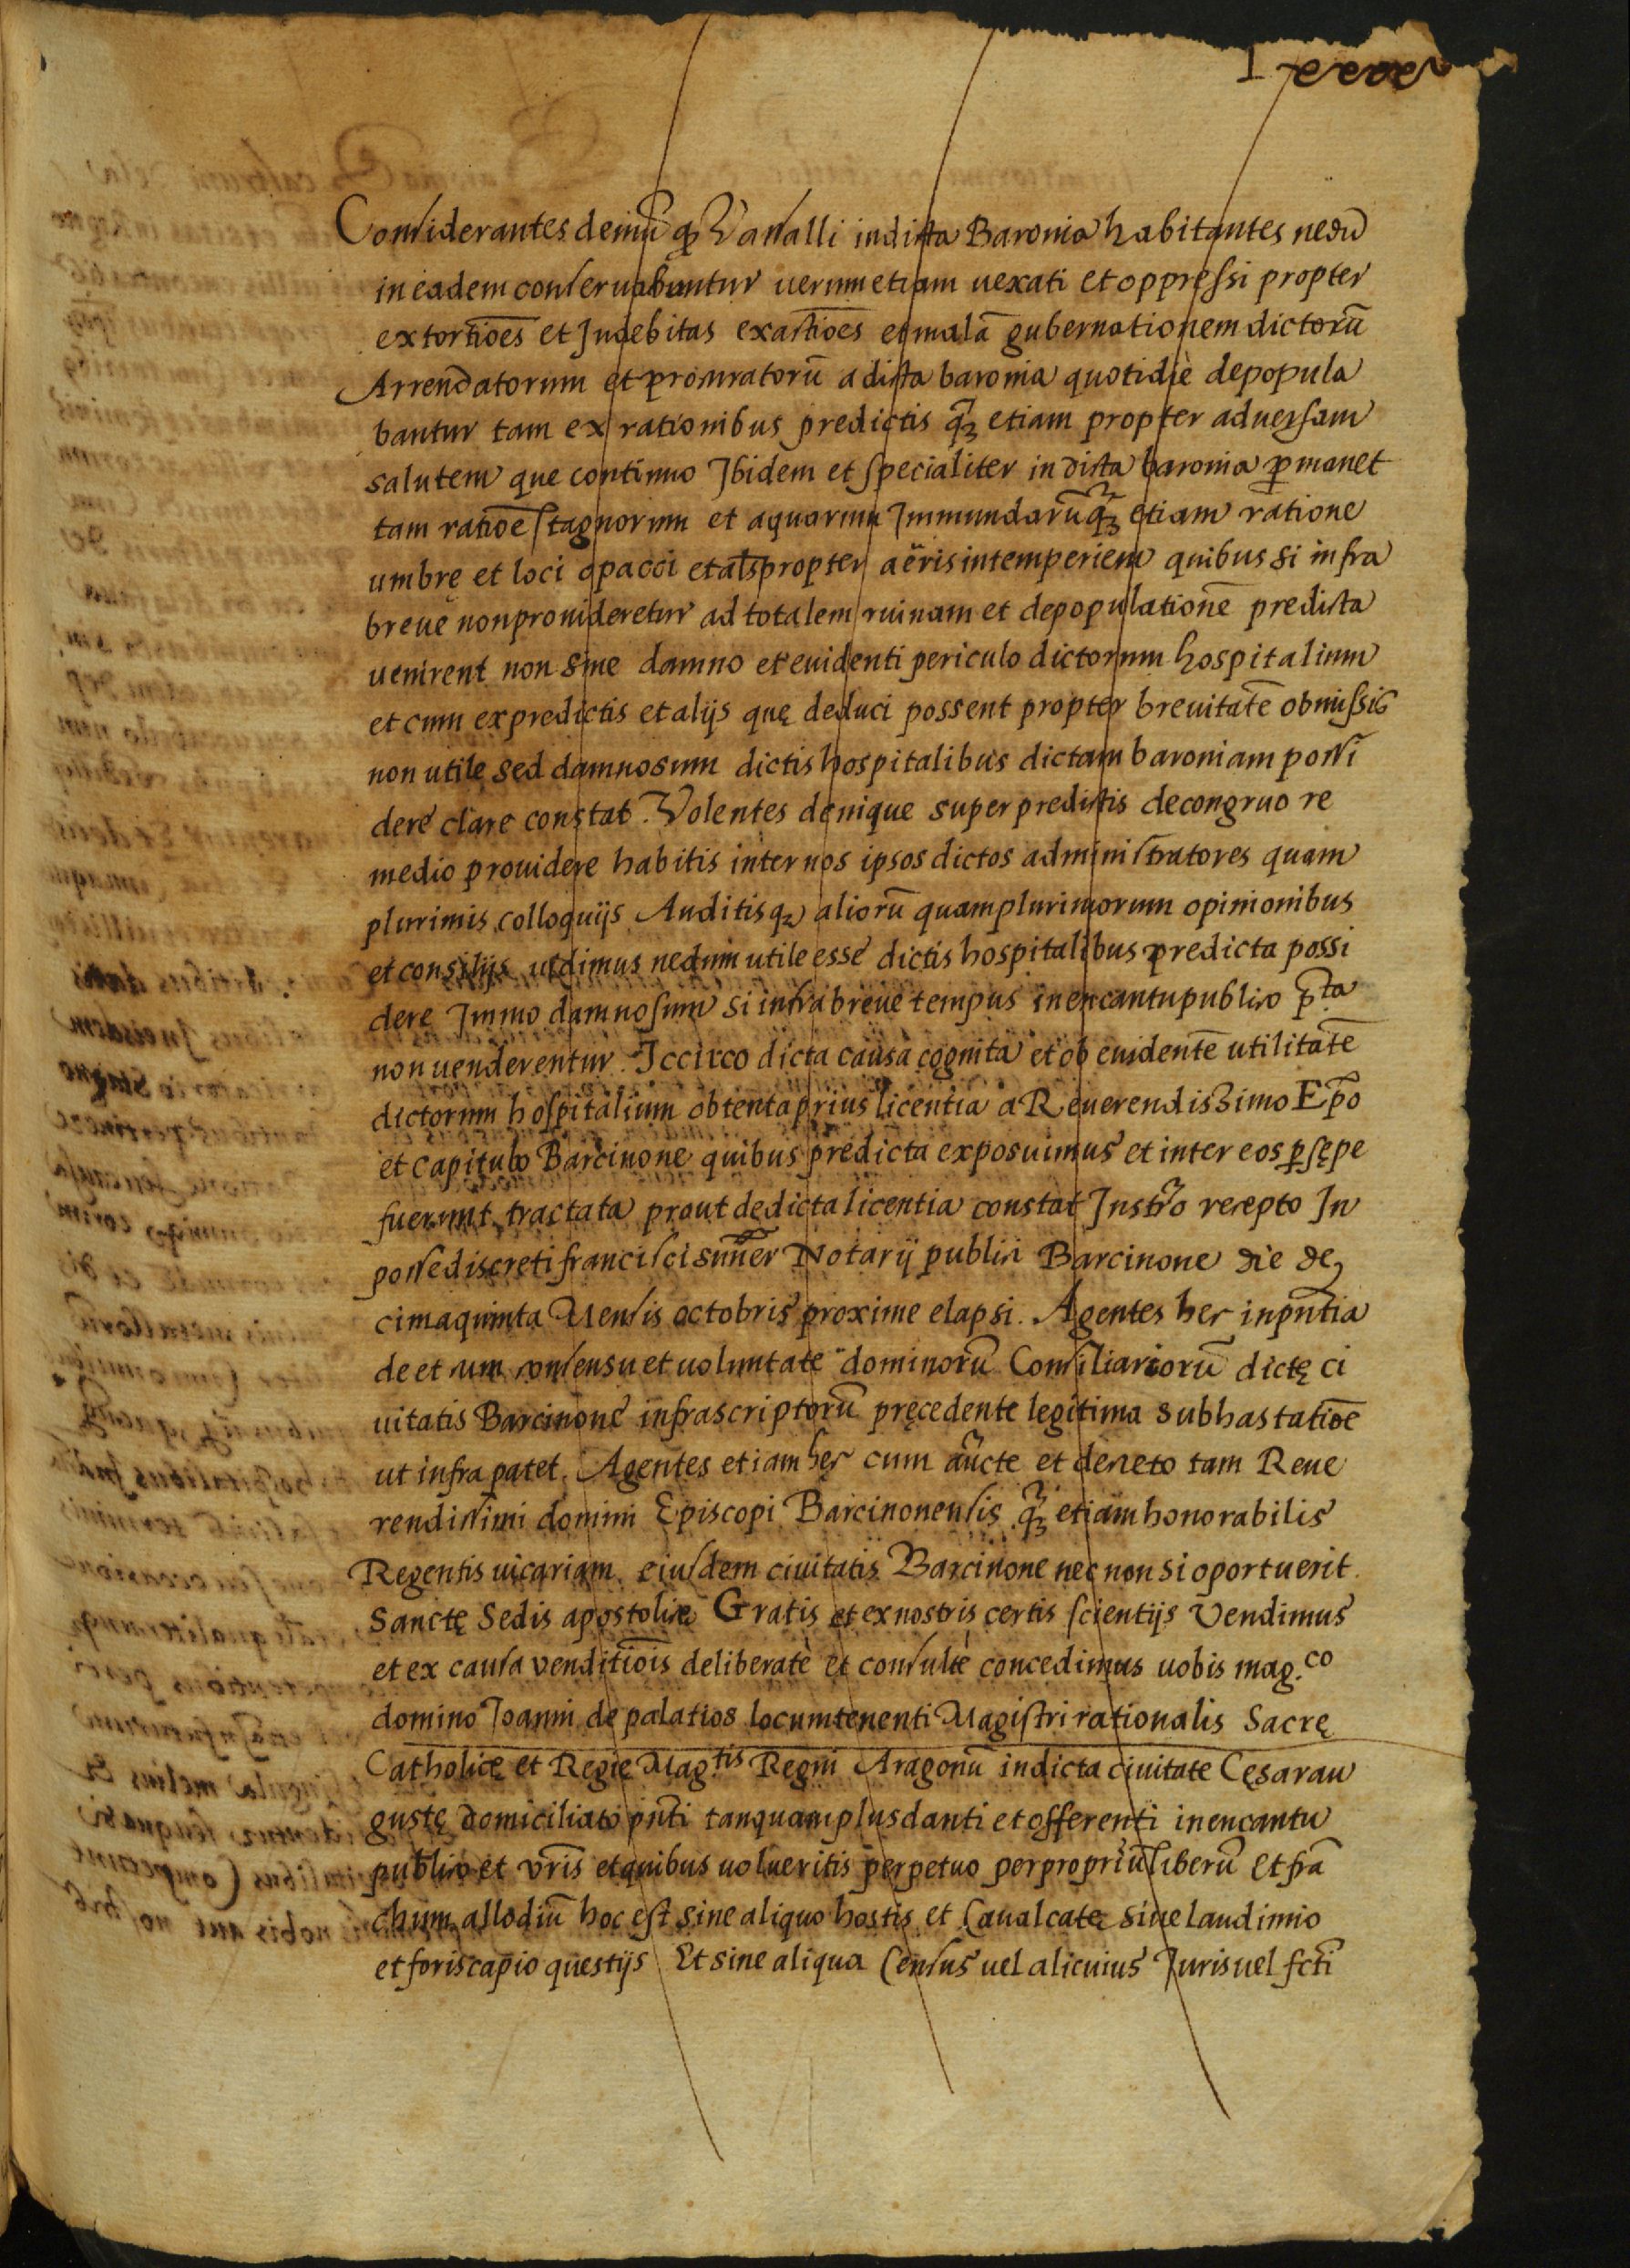 Considerantes demũ ꝙ Vassalli in dicta Baronia habitantes nedũ
in eadem conseruabuntur uerum etiam uexati et oppressi propter
extortiões et Indebitas exactiões et malã gubernationem dictorũ
Arrendatorum et procuratorũ a dicta baronia quotidiè depopula
bantur tam ex rationibus predictis q̃ꝫ etiam propter aduersam
salutem que continuo Ibidem et specialiter in dicta baronia ꝑmanet
tam ratiõe stagnorum et aquarum Immundarũ q̃ꝫ etiam ratione
umbrę et loci opacci et als̃ propter aëris intemperiem quibus si infra
breue non prouideretur ad totalem ruinam et depopulationẽ predicta
uenirent non sine damno et euidenti periculo dictorum hospitalium
et cum ex predictis et alijs quę deduci possent propter breuitatẽ obmissis
non utile sed damnosum dictis hospitalibus dictam baroniam possi
dere clare constat. Volentes denique super predictis de congruo re
medio prouidere habitis inter nos ipsos dictos administratores quam
plurimis colloquijs Auditisqꝫ aliorũ quamplurimorum opinionibus
et consilijs uidimus nedum utile esse dictis hospitalibus predicta possi
dere Immo damnosum si infra breue tempus in encantu publico p̃.ta
non uenderentur. Iccirco dicta causa cognita et ob euidentẽ utilitatẽ
dictorum hospitalium obtenta prius licentia a Reuerendissimo Ep̃o
et Capitulo Barcinone quibus predicta exposuimus et inter eos ꝑsępe
fuerunt tractata prout de dicta licentia constat Instr̃o recepto In
posse discreti francisci sun̄er Notarij publici Barcinone die de
cimaquinta Mensis octobris proxime elapsi. Agentes hec in pñtia
de et cum consensu et uoluntate dominorũ Consiliariorũ dictę ci
uitatis Barcinone infrascriptorũ pręcedente legitima subhastatiõe
ut infra patet. Agentes etiam hęc cum aũcte et decreto tam Reue
rendissimi domini Episcopi Barcinonensis q̃ꝫ etiam honorabilis
Regentis uicariam eiusdem ciuitatis Barcinone nec non si oportuerit
Sanctę Sedis apostolicę Gratis et ex nostris certis scientijs Vendimus
et ex causa venditiõis deliberatè et consultè concedimus uobis mag.co
domino Joanni de palatios locumtenenti Magistri rationalis Sacrę
Catholicę et Regie Mag.tis Regni Aragonũ in dicta ciuitate Cęsarau
gustę domiciliato pñti tanquam plus danti et offerenti in encantu
publico et vr̃is et quibus uolueritis perpetuo per propriũ liberũ et frã
chum allodiũ hoc est sine aliquo hostis et Caualcate siue laudimio
et foriscapio questijs Et sine aliqua Census uel alicuius Iuris uel fcti